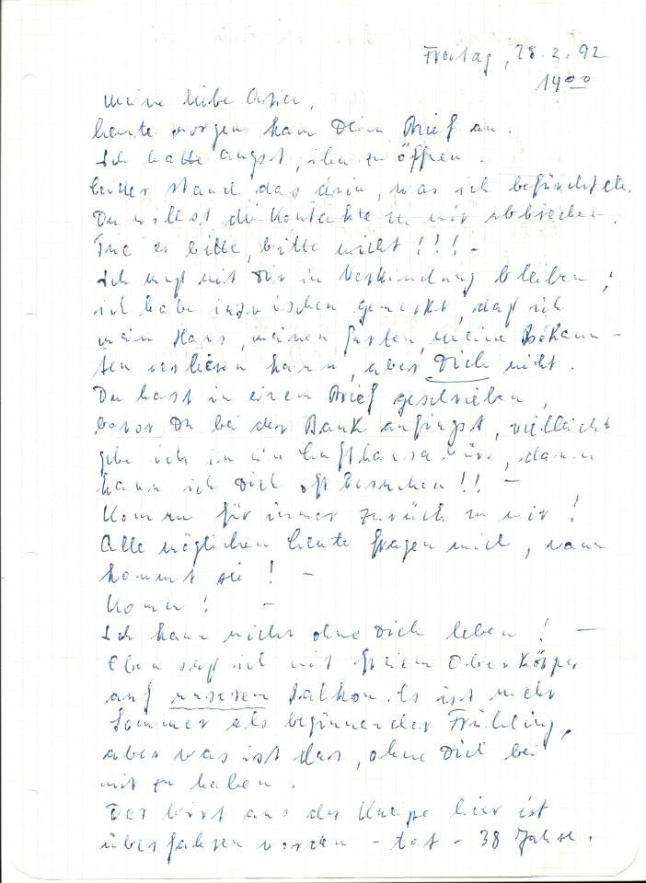 Freitag, 28.2.92
14.00
Meine liebe
heute morgen kam Dein Brief an.
Ich hatte angst, ihn zu öffnen.
leider stand das drin, was ich befürchtete.
Du willst die Kontakte zu mir abbrechen.
Tue es bitte, bitte nicht!!! -
Ich muß mit Dir in Verbindung bleiben,
ich habe inzwischen gemerkt, daß ich
mein Haus, meinen Garten, meine Bekann-
ten verlieren kann, aber Dich nicht.
Du hast in einem Brief geschrieben,
bevor Du bei der Bank anfingst, vielleicht
gehe ich in ein Lufthansabüro, dann
kann ich Dich oft besuchen!! -
Komm für immer zurück zu mir!
Alle möglichen Leute fragen mich, wann
kommt sie! -
Komm! -
Ich kann nicht ohne Dich leben! -
Eben saß ich mit freiem Oberkörper
auf unserem Balkon. Es ist mehr
Sommer als beginnender Frühling,
aber was ist das, ohne Dich bei
mir zu haben.
Der Wirt aus der Kneipe hier ist
überfahren worden - tot - 38 Jahre.